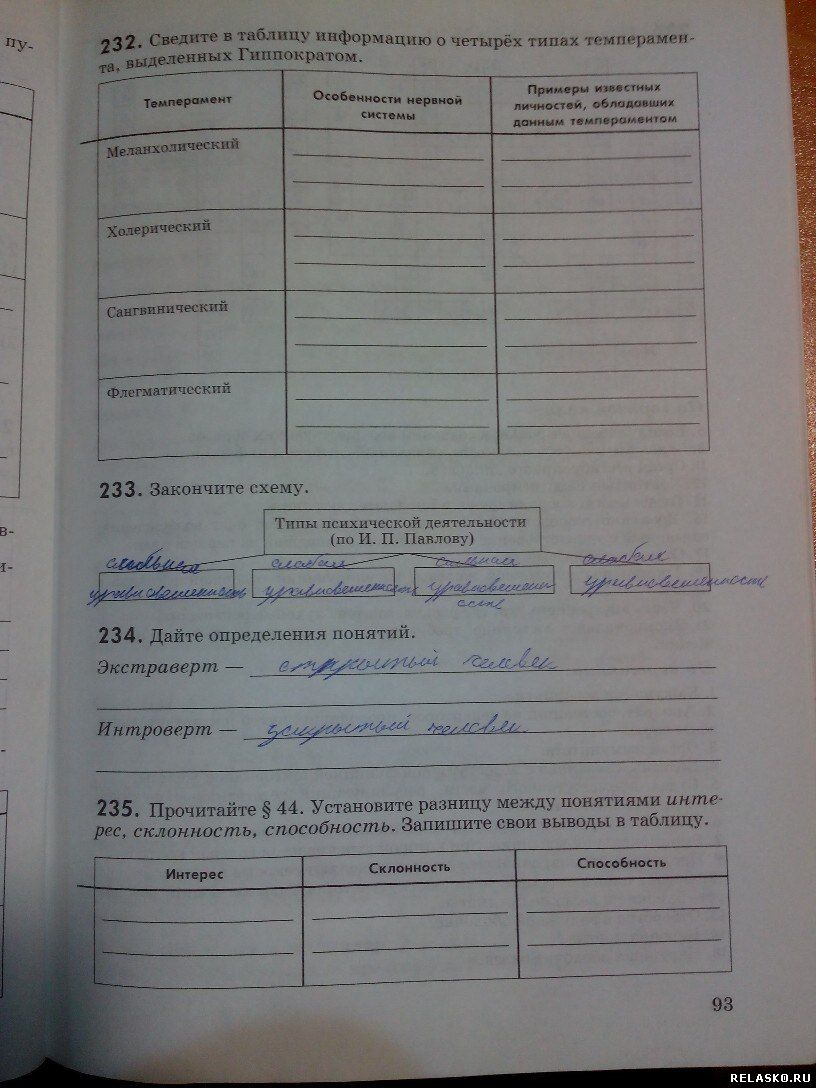 пу-
232. Сведите в таблицу информацию о четырёх типах темперамен-
та, выделенных Гиппократом.
Темперамент
Особенности нервной
системы
Примеры известных
личностей, обладавших
данным темпераментом
Меланхолический
Холерический
Сангвинический
Флегматический
233. Закончите схему.
в-
и-
Типы психической деятельности
(по И. П. Павлову)
слабая
уравновешенность
уравновешенность
уравновешенность
234. Дайте определения понятий.
Экстраверт — открытый человек
Интроверт — закрытый человек
235. Прочитайте § 44. Установите разницу между понятиями инте-
рес, склонность, способность. Запишите свои выводы в таблицу.
Интерес
Склонность
Способность
93
RELASKO.RU